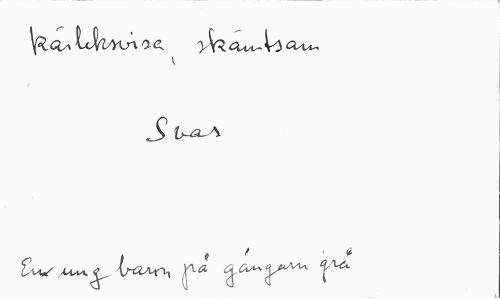 Kärleksvisa, skämtsam
Svar
En ung baron på gångarn grå